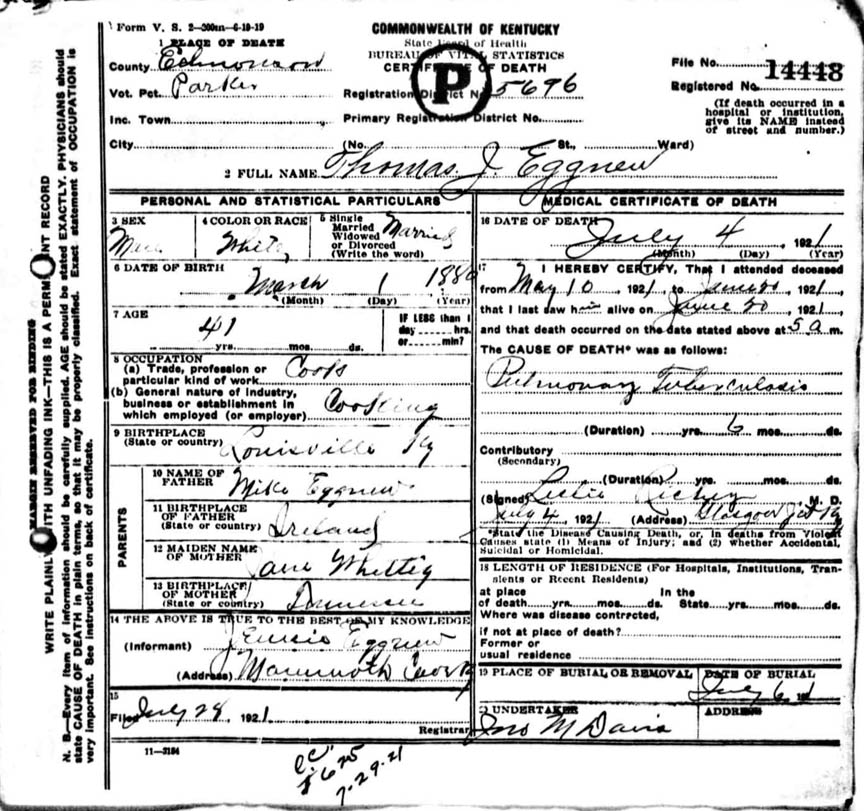 Form V. S. 2-300m-6-19-19
COMMONWEALTH OF KENTUCKY
State Board of Health
BUREAU OF VITAL STATISTICS
CERTIFICATE OF DEATH
P
File No. 14448
Registered No.
(If death occurred in a hospital or institution, give its NAME instead of street and number.)
1 PLACE OF DEATH
County Edmonson
Vot. Pct. Parker
Registration District No. 5696
Inc. Town
Primary Registration District No.
City (No. St., Ward)
2 FULL NAME Thomas J. Eggnew
PERSONAL AND STATISTICAL PARTICULARS
3 SEX
Male
4 COLOR OR RACE
White
5 Single Married Widowed or Divorced (Write the word)
Married
6 DATE OF BIRTH
March 1 1880
(Month) (Day) (Year)
7 AGE
41
yrs. mos. ds.
IF LESS than 1 day hrs. or min?
8 OCCUPATION
(a) Trade, profession or particular kind of work Cook
(b) General nature of industry, business or establishment in which employed (or employer) Cooking
9 BIRTHPLACE
(State or country) Louisville Ky
PARENTS
10 NAME OF FATHER Mike Eggnew
11 BIRTHPLACE OF FATHER (State or country) Ireland
12 MAIDEN NAME OF MOTHER Jane
13 BIRTHPLACE OF MOTHER (State or country)
14 THE ABOVE IS TRUE TO THE BEST OF MY KNOWLEDGE
(Informant) Eggnew
(Address) Mammoth Cave Ky
15
Filed July 28, 1921.
Registrar
11-3184
MEDICAL CERTIFICATE OF DEATH
16 DATE OF DEATH
July 4, 1921
(Month) (Day) (Year)
17 I HEREBY CERTIFY, That I attended deceased
from May 10 1921 to June 20, 1921,
that I last saw him alive on June 20, 1921,
and that death occurred on the date stated above at 5 a m.
The CAUSE OF DEATH* was as follows:
Pulmonary Tuberculosis
(Duration) yrs. 6 mos. ds.
Contributory
(Secondary)
(Duration) yrs. mos. ds.
(Signed) M. D.
July 4, 1921 (Address) Glasgow Jct Ky
*State the Disease Causing Death, or, in deaths from Violent
Causes state (1) Means of Injury; and (2) whether Accidental,
Suicidal or Homicidal.
18 LENGTH OF RESIDENCE (For Hospitals, Institutions, Tran-
sients or Recent Residents)
at place of death yrs. mos. ds. In the State yrs. mos. ds.
Where was disease contrected,
if not at place of death?
Former or
usual residence
19 PLACE OF BURIAL OR REMOVAL
DATE OF BURIAL
July 6
UNDERTAKER
Jno M Davis
ADDRESS
7-29-21
MARGIN RESERVED FOR BINDING
WRITE PLAINLY WITH UNFADING INK—THIS IS A PERMANENT RECORD
N. B.—Every item of information should be carefully supplied. AGE should be stated EXACTLY. PHYSICIANS should
state CAUSE OF DEATH in plain terms, so that it may be properly classified. Exact statement of OCCUPATION is
very important. See instructions on back of certificate.